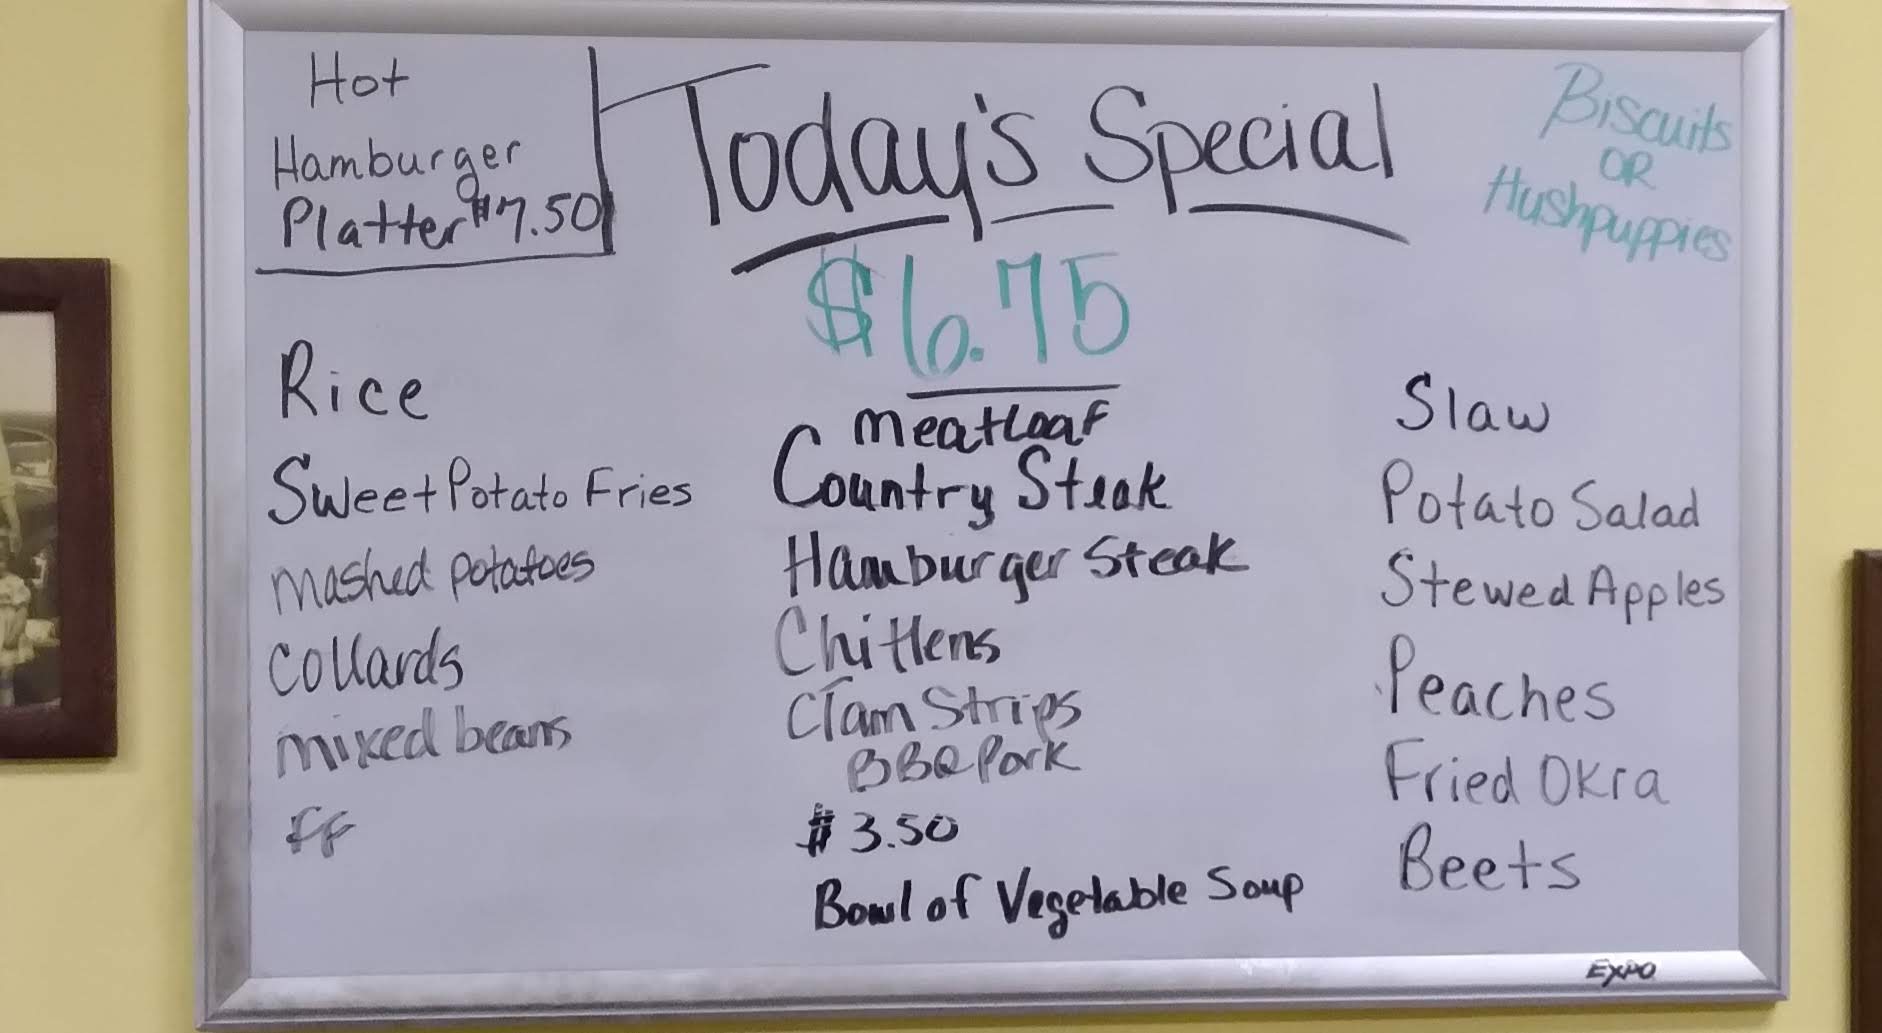 Hot
Hamburger
Platter $7.50
Today's Special
$6.75
Biscuits
OR
Hushpuppies
Rice
Sweet Potato Fries
mashed potatoes
Collards
mixed beans
FF
meatloaf
Country Steak
Hamburger Steak
Chitlens
Clam Strips
BBQ Pork
$3.50
Bowl of Vegetable Soup
Slaw
Potato Salad
Stewed Apples
Peaches
Fried Okra
Beets
EXPO